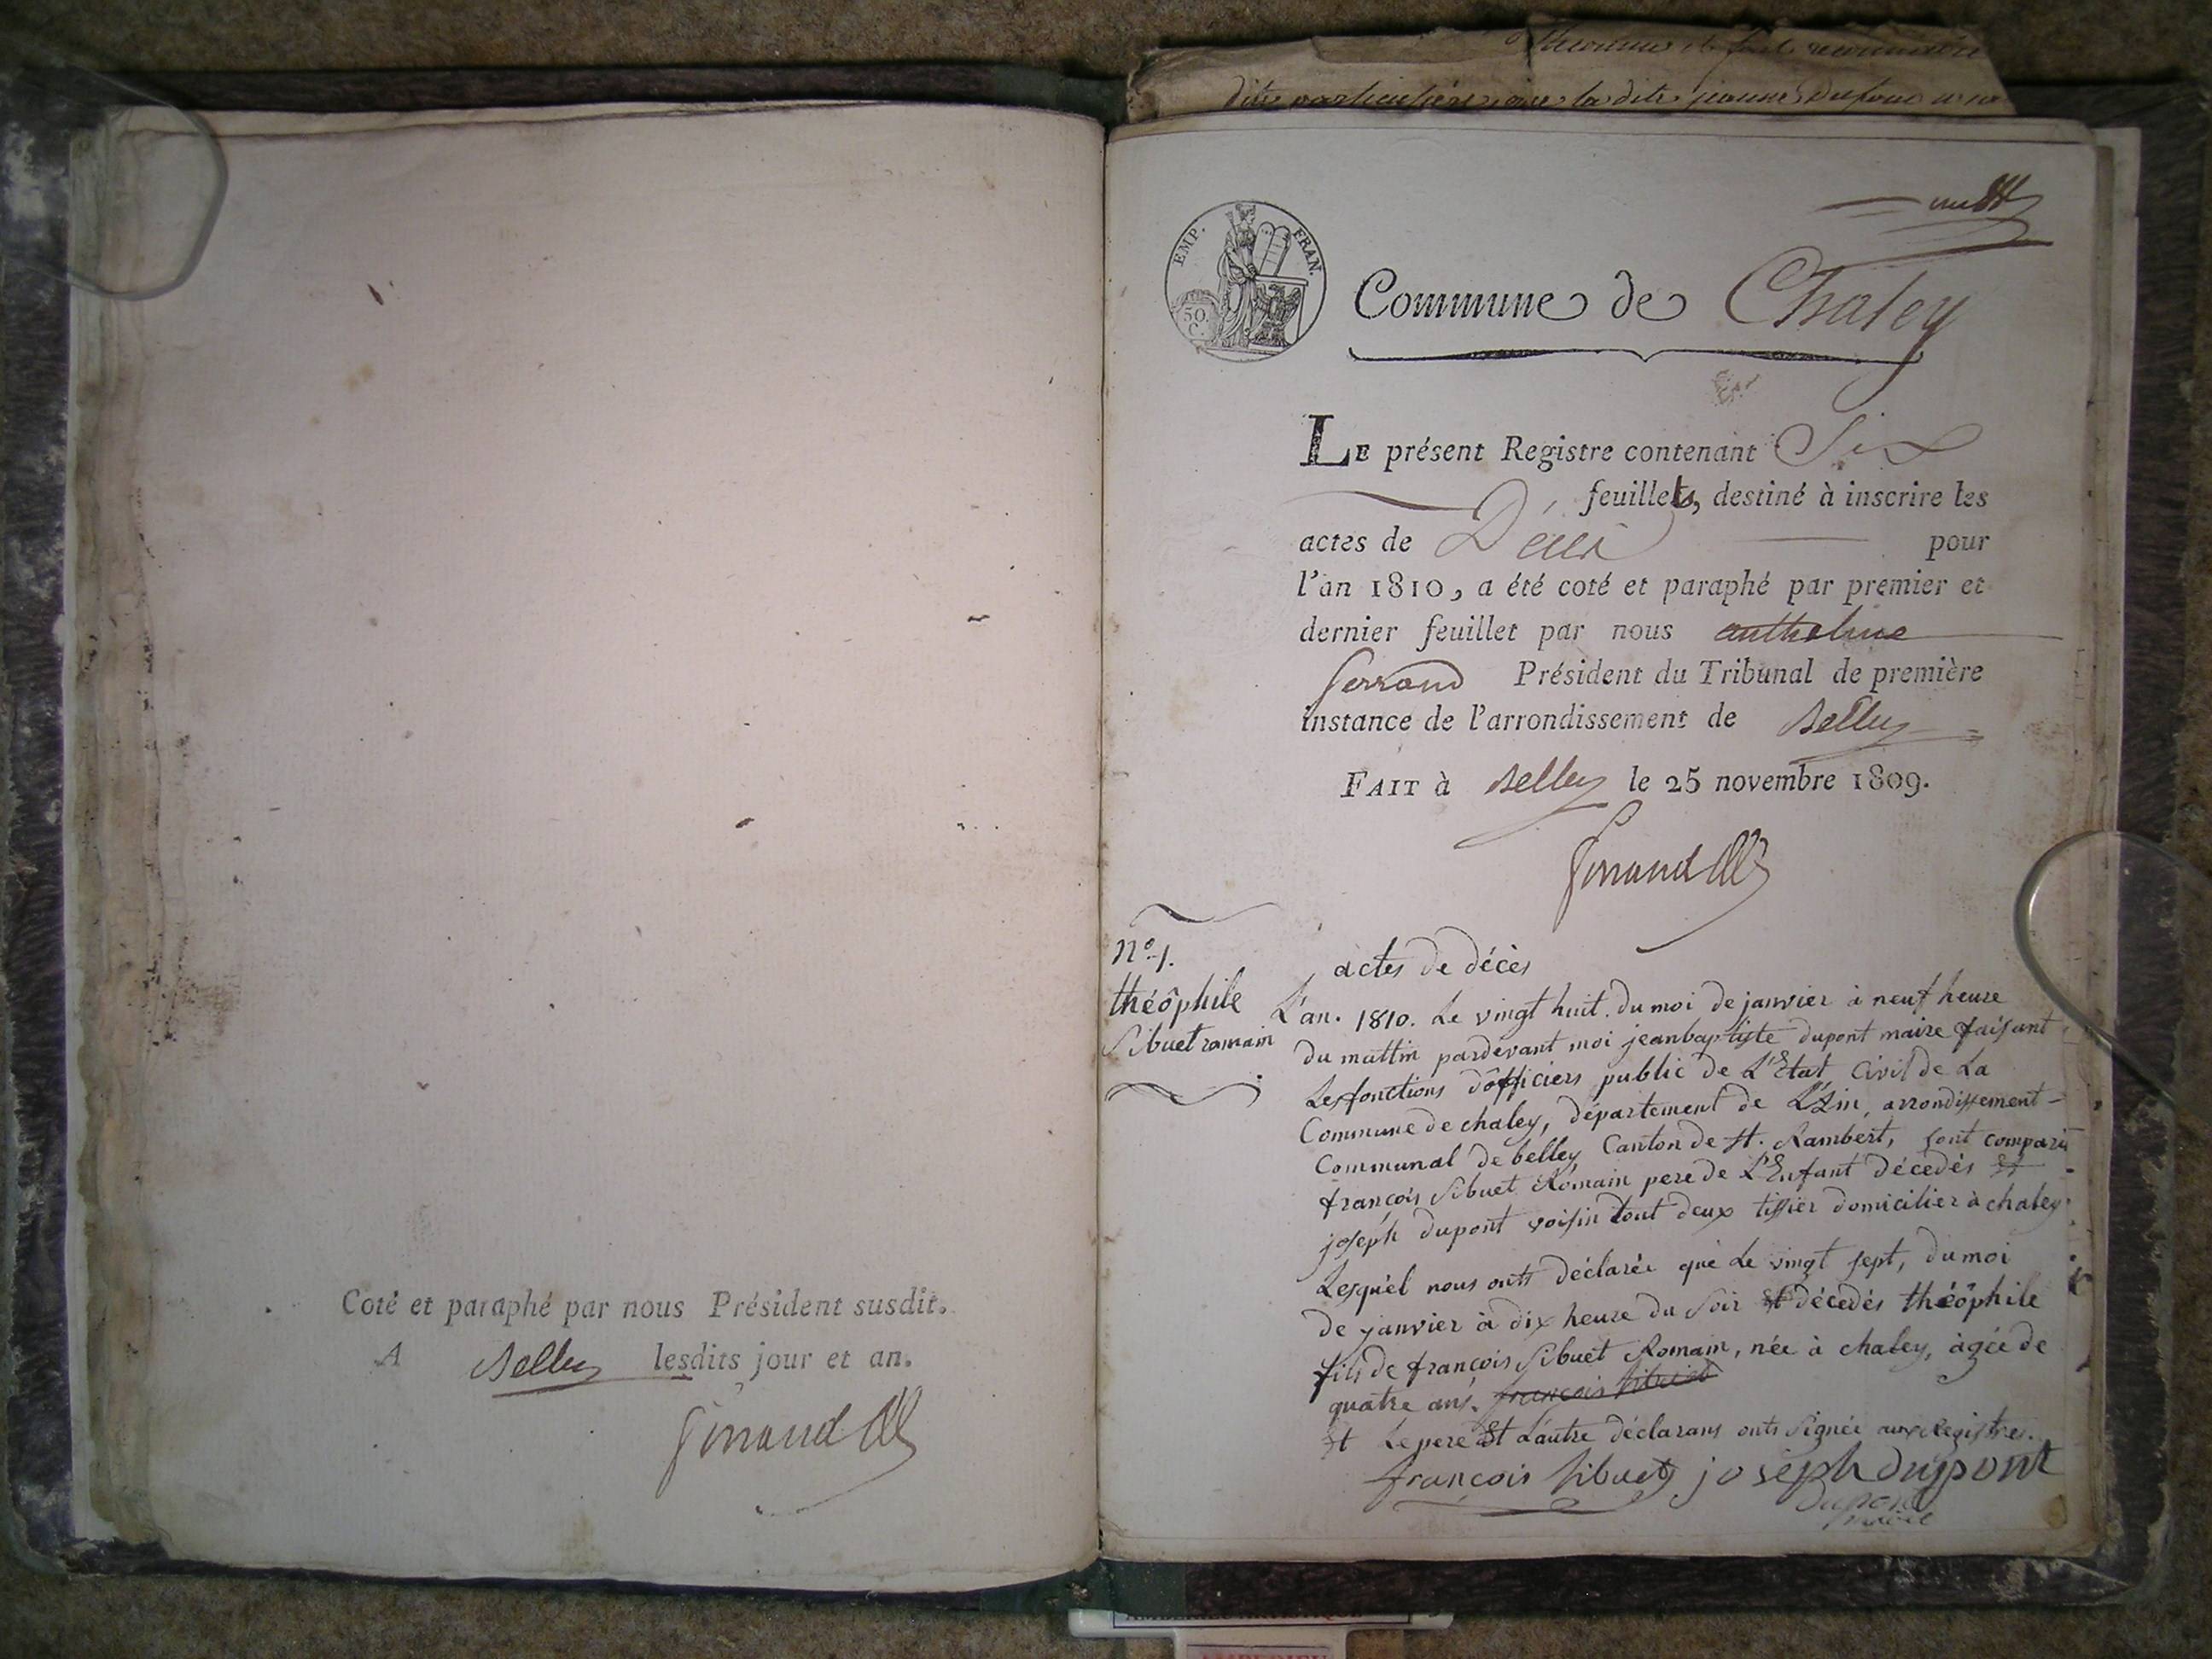 Coté et paraphé par nous Président susdit.
A Belley lesdits jour et an.
dite particulière que la dite jeanne
EMP. FRAN.
50.
C.
Commune de Chaley
LE présent Registre contenant Six
feuillets, destiné à inscrire les
actes de Décès pour
l'an 1810, a été coté et paraphé par premier et
dernier feuillet par nous anthelme
ferrand Président du Tribunal de première
instance de l'arrondissement de Belley
FAIT à Belley le 25 novembre 1809.
N° 1.
théôphile
Sibuet romain
actes de décès
L'an. 1810. Le vingt huit. du moi de janvier à neuf heure
du mattin pardevant moi jeanbaptiste dupont maire faisant
Les fonctions d'officiers public de L'Etat Civil de La
Commune de chaley, département de L'Ain, arrondissement
Communal de belley Canton de St. Rambert, sont comparu
françois Sibuet Romain pere de L'Enfant décedés et
joseph dupont voisin tout deux tissier domicilier à chaley
Lesquel nous onts déclarée que Le vingt sept, du moi
de janvier à dix heure du Soir Et décedés théôphile
fils de françois Sibuet Romain, née à chaley, âgée de
quatre ans. françois sibuet
Et Le pere Et L'autre déclarans onts Signée aux Registres.
françois sibuet joseph dupont
Dupont
maire